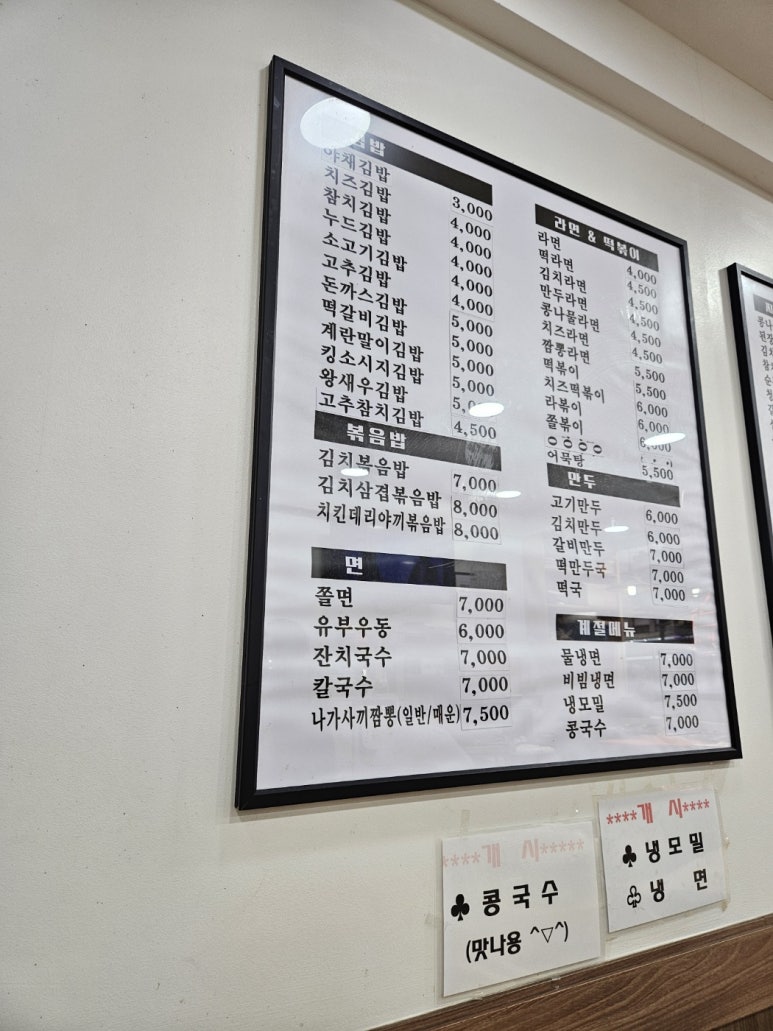 김밥
야채김밥 3,000
치즈김밥 4,000
참치김밥 4,000
누드김밥 4,000
소고기김밥 4,000
고추김밥 4,000
돈까스김밥 5,000
떡갈비김밥 5,000
계란말이김밥 5,000
킹소시지김밥 5,000
왕새우김밥
고추참치김밥 4,500
볶음밥
김치볶음밥 7,000
김치삼겹볶음밥 8,000
치킨데리야끼볶음밥 8,000
면
쫄면 7,000
유부우동 6,000
잔치국수 7,000
칼국수 7,000
나가사끼짬뽕(일반/매운) 7,500
라면 & 떡볶이
라면 4,000
떡라면 4,500
김치라면 4,500
만두라면 4,500
콩나물라면 4,500
치즈라면 4,500
짬뽕라면 5,500
떡볶이 5,500
치즈떡볶이 6,000
라볶이 6,000
쫄볶이 6,000
어묵탕 5,500
만두
고기만두 6,000
김치만두 6,000
갈비만두 7,000
떡만두국 7,000
떡국 7,000
계절메뉴
물냉면 7,000
비빔냉면 7,000
냉모밀 7,500
콩국수 7,000
****개 시*****
♣ 콩국수
(맛나용 ^▽^)
****개 시****
♣ 냉모밀
♧ 냉 면